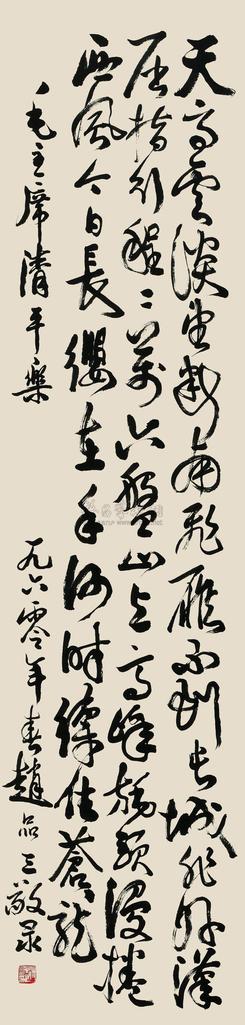 天高雲淡望斷南飛雁不到長城非好漢
屈指行程二萬六盤山上高峰旄頭漫捲
西風今日長纓在手何時縛住蒼龍
毛主席清平樂 一九六零年春趙品三敬录